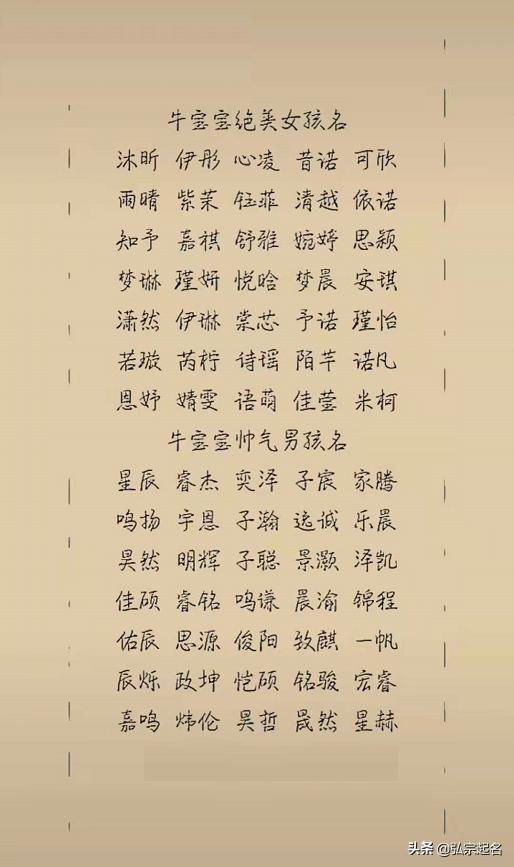 牛宝宝绝美女孩名
沐昕 伊彤 心凌 昔诺 可欣
雨晴 紫茉 钰菲 清越 依诺
知予 嘉祺 舒雅 婉婷 思颖
梦琳 瑾妍 悦晗 梦晨 安琪
潇然 伊琳 棠芯 予诺 瑾怡
若璇 芮柠 诗瑶 陌芊 诺凡
恩妤 婧雯 语萌 佳莹 米柯
牛宝宝帅气男孩名
星辰 睿杰 奕泽 子宸 家腾
鸣扬 宇恩 子瀚 逸诚 乐晨
昊然 明辉 子聪 景灏 泽凯
佳硕 睿铭 鸣谦 晨渝 锦程
佑辰 思源 俊阳 致麒 一帆
辰烁 政坤 恺硕 铭骏 宏睿
嘉鸣 炜伦 昊哲 晟然 星赫
头条 @弘宗起名